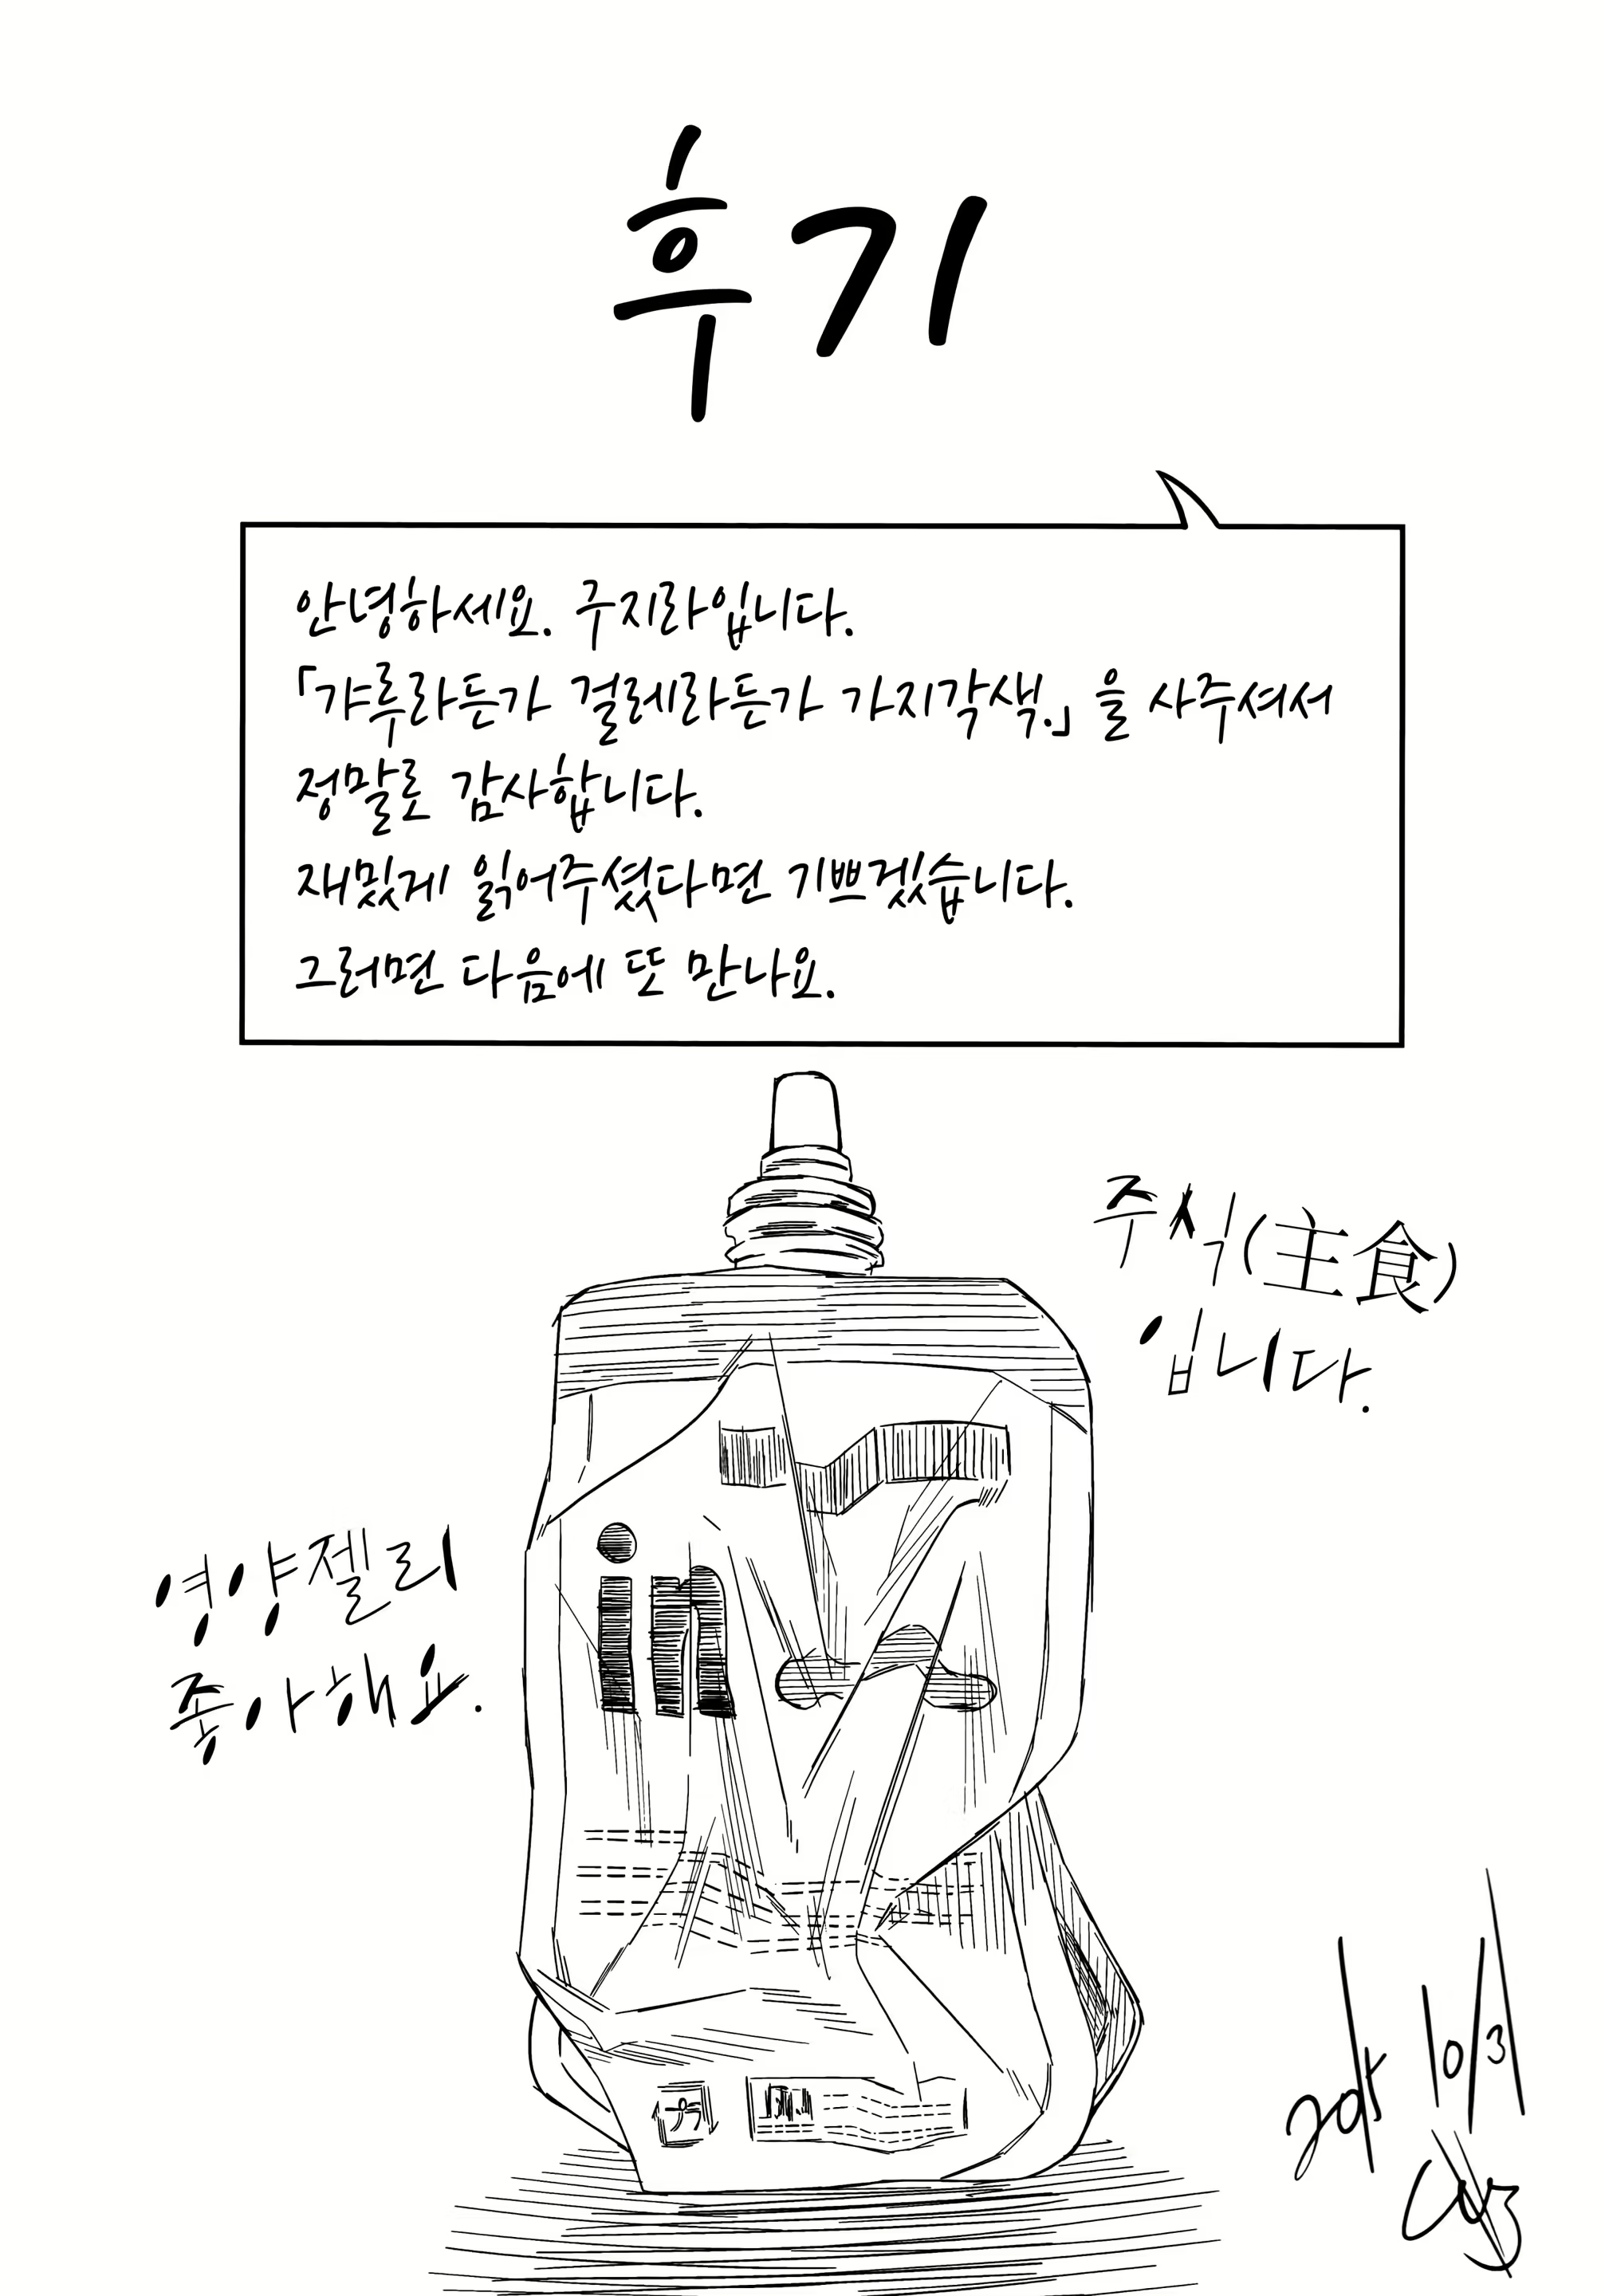 후기
안녕하세요. 주지라입니다.
「갸루라든가 걸레라든가 가지각색.」 을 사주셔서
정말로 감사합니다.
재밌게 읽어주셨다면 기쁘겠습니다.
그러면 다음에 또 만나요.
주식(主食)
입니다.
영양젤리
좋아해요.
in
プラ